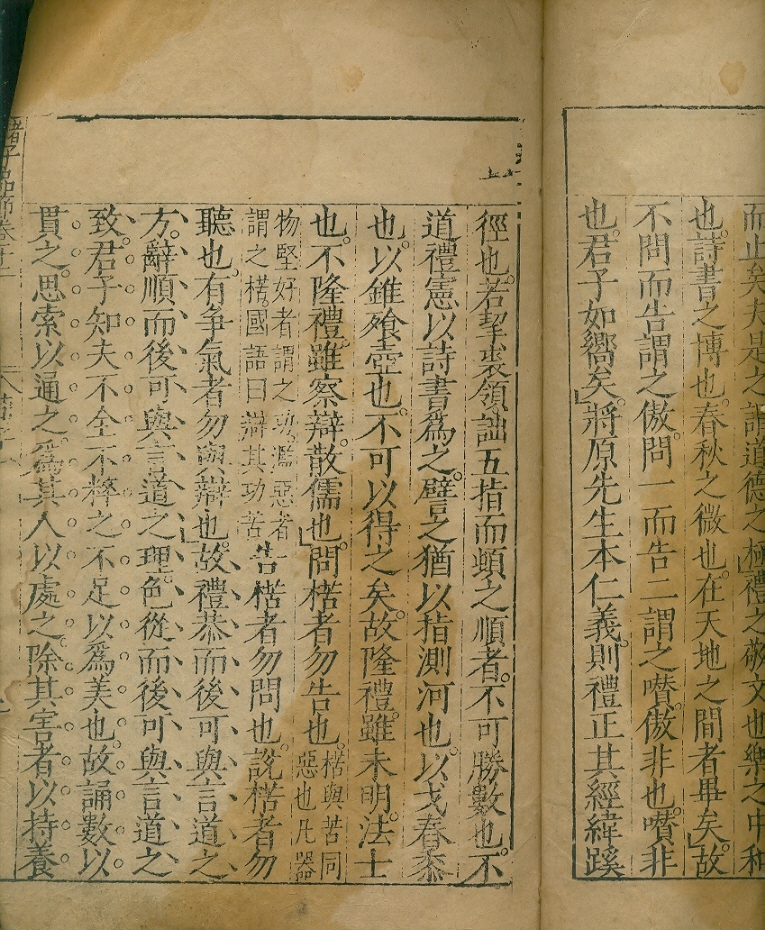 而止矣夫是之謂道德之極禮之敬文也樂之中和
也詩書之博也春秋之微也在天地之間者畢矣故
不問而告謂之傲問一而告二謂之囋傲非也囋非
也君子如嚮矣將原先生本仁義則禮正其經緯蹊
徑也若挈裘領詘五指而頓之順者不可勝數也不
道禮憲以詩書爲之譬之猶以指測河也以戈舂黍
也以錐飱壺也不可以得之矣故隆禮雖未明法士
也不隆禮雖察辯散儒也問楛者勿告也楛與苦同
惡也凡器
物堅好者謂之功濫惡者
謂之楛國語曰辯其功苦
告楛者勿問也說楛者勿
聽也有爭氣者勿與辯也故禮恭而後可與言道之
方辭順而後可與言道之理色從而後可與言道之
致君子知夫不全不粹之不足以爲美也故誦數以
貫之思索以通之爲其人以處之除其害者以持養
諸子品節卷十一